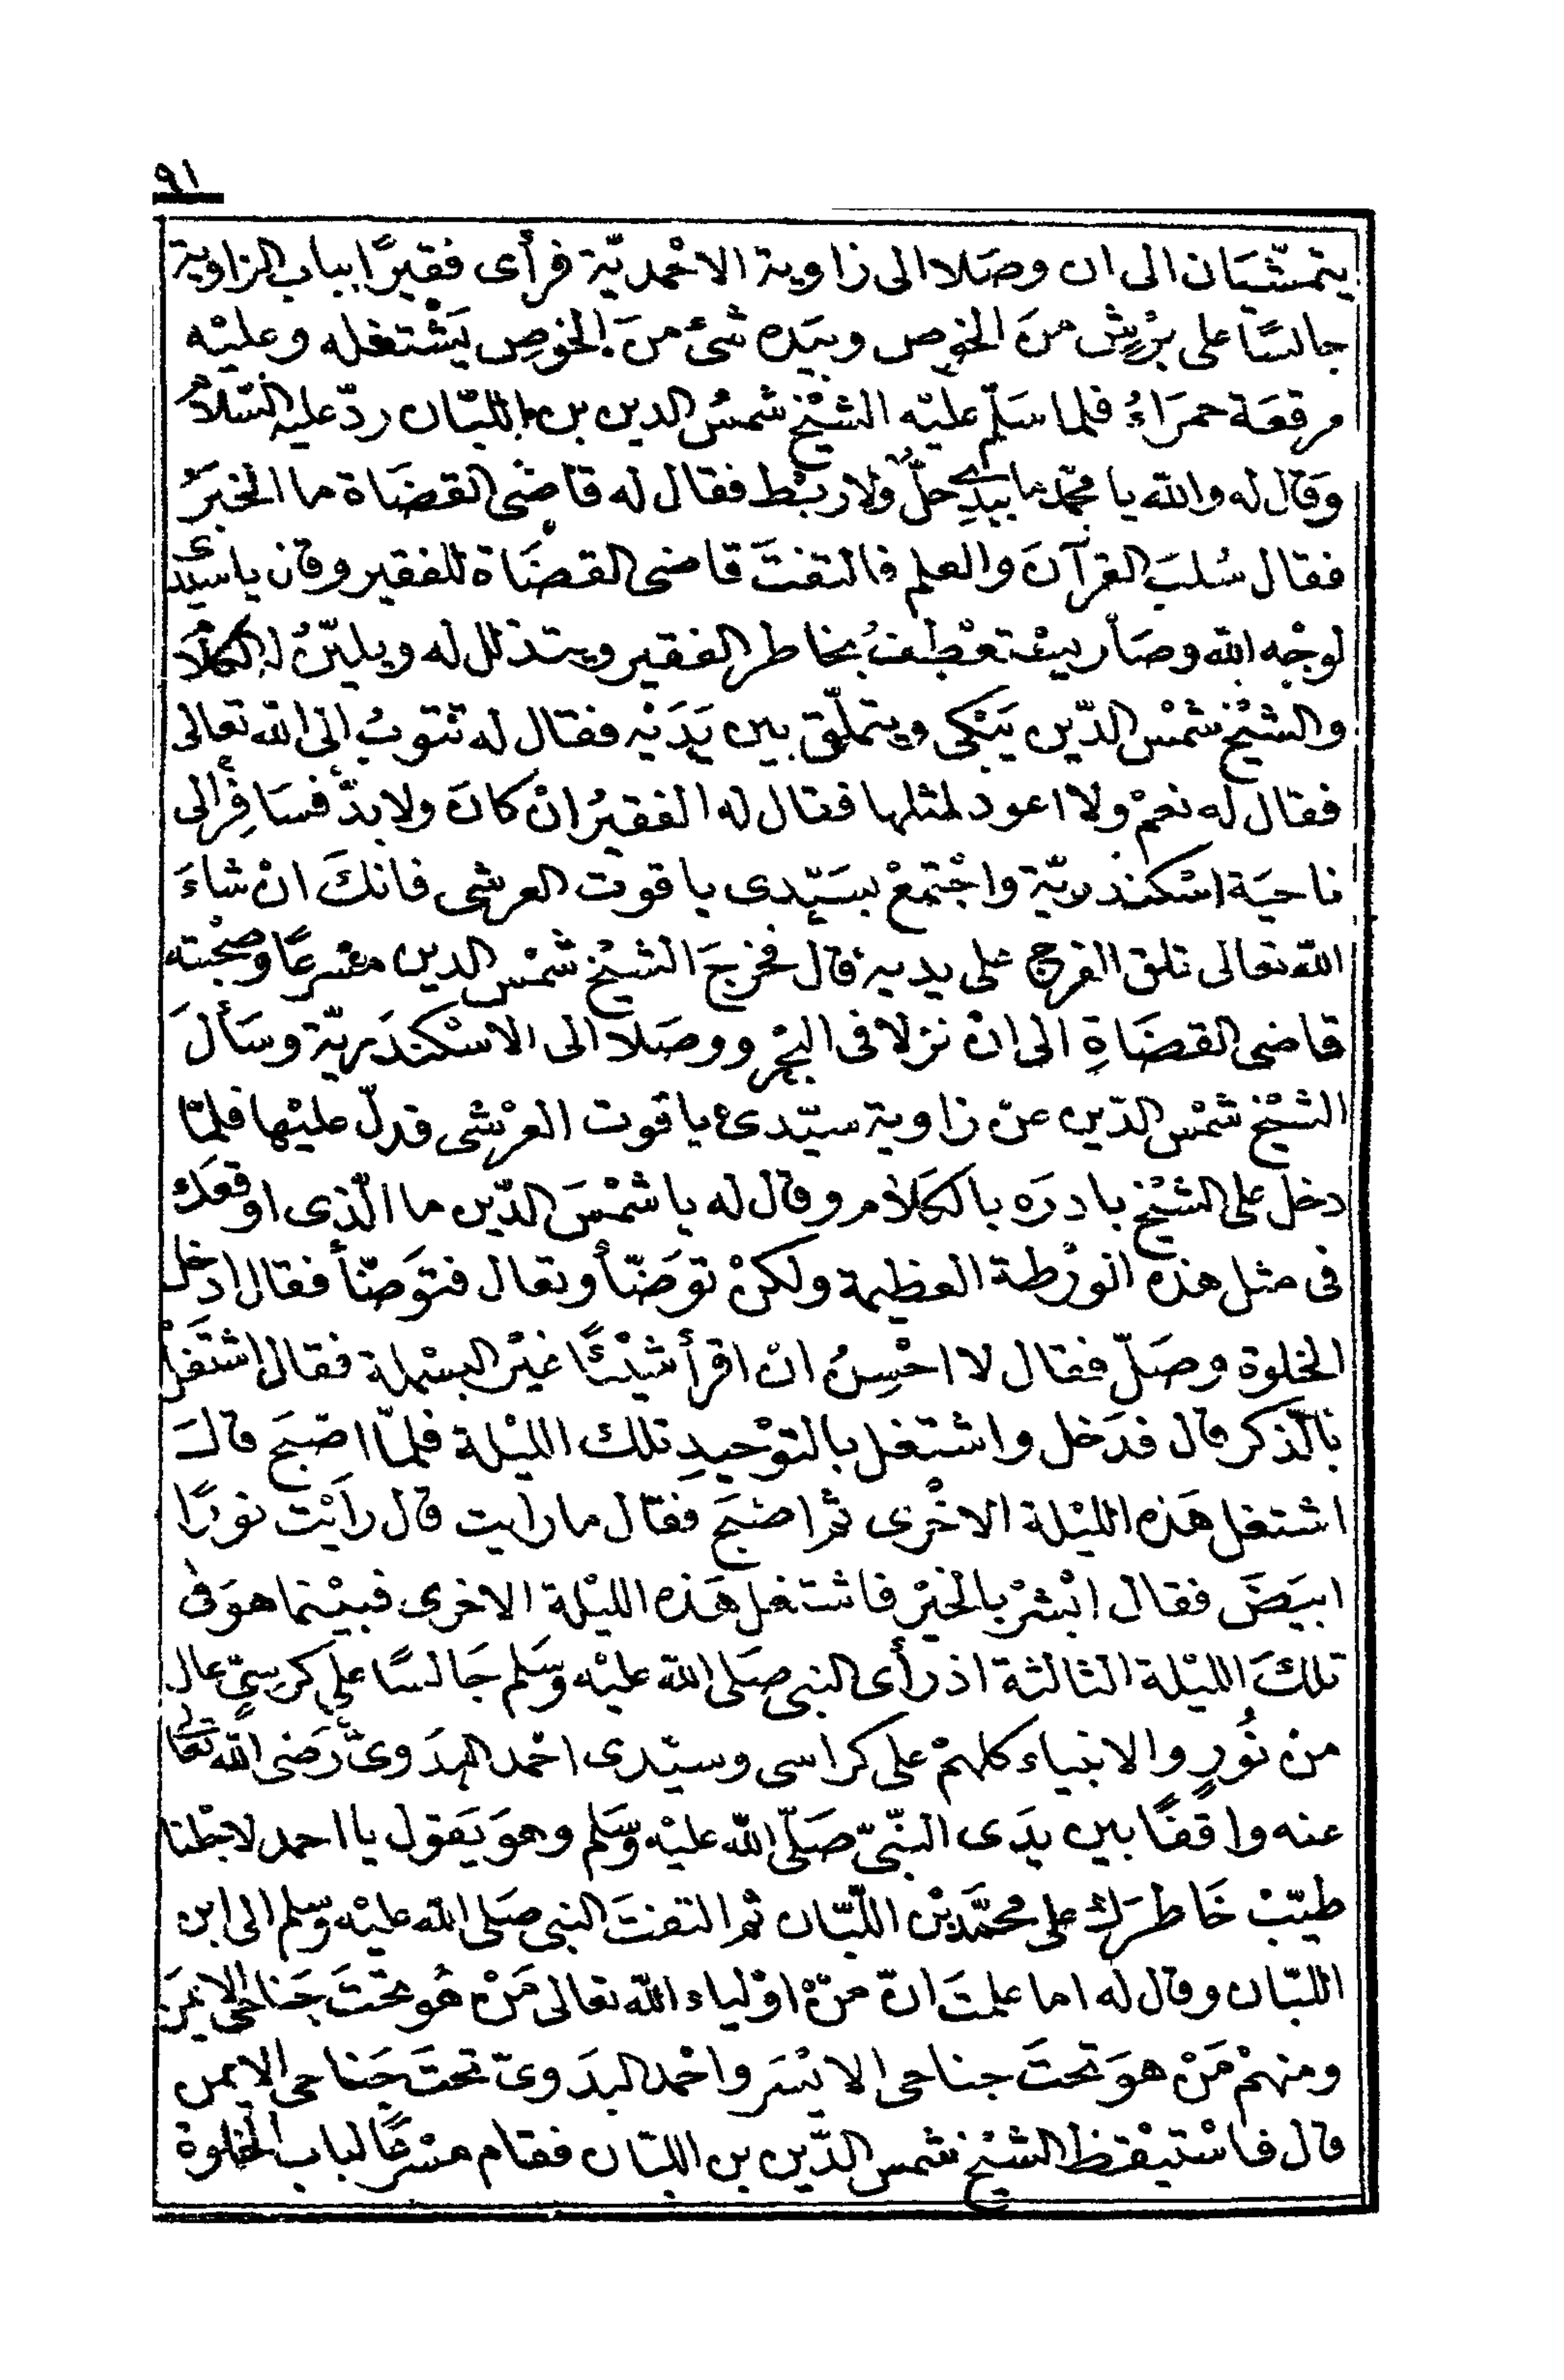 ٩١
يتمشّيان الى ان وصَلا الى زاوية الاحْمديّة فرأى فقيرًا بباب الزاوية
جالسًا على بُرْشٍ منَ الخوص وبيَده شئ منَ الخوصِ يَشْتغله وعليْه
مرقعَة حمرَاءُ فلما سَلّم عليْه الشيْخ شمسُ الدين بن اللبّان ردّ عليه السّلامْ
وَقال له والله يا محمّد ما بيدِى حلٌّ ولا ربْط فقال له قاضى القضَاة ما الخبَرُ
فقال سُلبَ القرآنَ والعلم فالتفتَ قاضى القضَاة للفقير وقال يا سيّدى
لوجْه الله وصَار يسْتعْطِفُ بخاطر الفقير ويتذلل له ويليّنُ له الكلامَ
والشيْخ شمْس الدّين يَبْكى ويتملّق بين يَدَيْه فقال له تتوبُ الى الله تعالى
فقال له نعمْ ولا اعود لمثلها فقال له الفقيرُ انْ كانَ ولا بدَّ فسَافِرْ الى
ناحيَة اسْكندريّة واجْتمعْ بسَيّدى ياقوت العرشى فانكَ انْ شاءَ
الله تعالى تلق الفرج على يديه قال فخرجَ الشيْخ شمْس الدين مسْرعًا وصحْبته
قاضى القضَاةِ الى انْ نزلا فى البحْر ووصَلا الى الاسْكندَريّة وسَألَ
الشيْخ شمْس الدّين عنْ زاوية سيّدى ياقوت العرْشى فدلّ عليْها فلمّا
دخل على الشيْخ بادرَه بالكلام وقال له يا شمْسَ الدّين ما الّذى اوقعَك
فى مثل هذه الورْطة العظيمة ولكنْ توَضّأ وتعال فتوَضّأ فقال ادْخل
الخلوة وصَلّ فقال لا احْسِنُ ان اقرأ شيْئًا غيْر البسْملة فقال اشتَغلْ
بالذّكر قال فدَخل واشتغل بالتوْحيدِ تلك الليْلة فلمّا اصْبَح قالَ
اشتغل هَذه الليْلة الاخْرى ثم اصْبَح فقال ما رايت قال رَايْت نورًا
ابيَضَ فقال ابْشرْ بالخيْر فاشتغل هَذه الليْلة الاخرى فبيْنما هوَ فى
تلكَ الليْلة الثالثة اذ رأى النبى صَلى الله عليْه وَسَلم جَالسًا على كرسىٍّ عال
منْ نُورٍ والانبياء كلهمْ على كراسى وسيّدى احْمد البدَوىّ رَضى الله تعالى
عنه واقفًا بين يدَى النّبىّ صَلّى الله عليْه وَسَلم وهوَ يَقول يا احمد لاجْلنا
طيّبْ خَاطرَك على محمَّد بْن اللّبّان ثم التفتَ النبى صَلى الله عليْه وسلم الى ابن
اللبّان وقال له اما علمتَ انّ منْ اوْلياء الله تعالى مَنْ هُو تحتَ جَناحى الايْمَن
ومنهمْ مَنْ هوَ تحتَ جناحى الايْسَر واحْمد البدَوىّ تحتَ جَناحى الايمن
قال فاسْتيْقظ الشيْخ شمس الدّين بن اللبّان فقام مسْرعًا لباب الخلوةْ